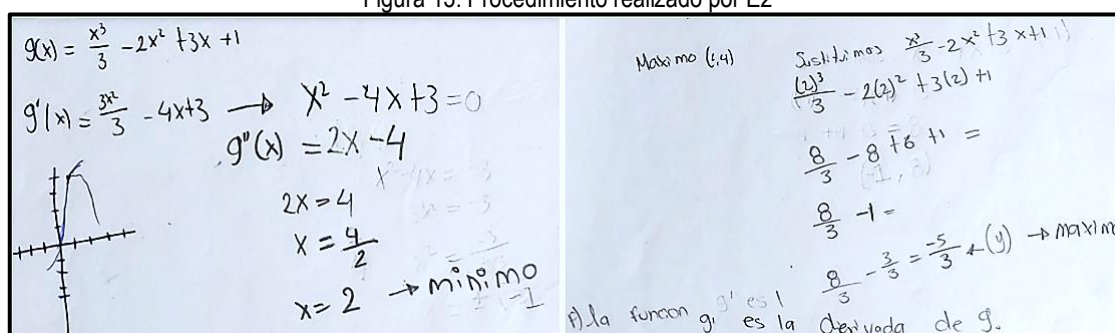 Figura 15. Procedimiento realizado por E2
g(x) = x³/3 - 2x² + 3x + 1
g'(x) = 3x²/3 - 4x + 3 → x² - 4x + 3 = 0
g''(x) = 2x - 4
2x = 4
x = 4/2
x = 2 → minimo
Maximo (1,4)
Sustituimos x³/3 - 2x² + 3x + 1
(2)³/3 - 2(2)² + 3(2) + 1
8/3 - 8 + 6 + 1 =
8/3 - 1 =
8/3 - 3/3 = -5/3 ← (y) → maximo
la funcion g' es la derivada de g.